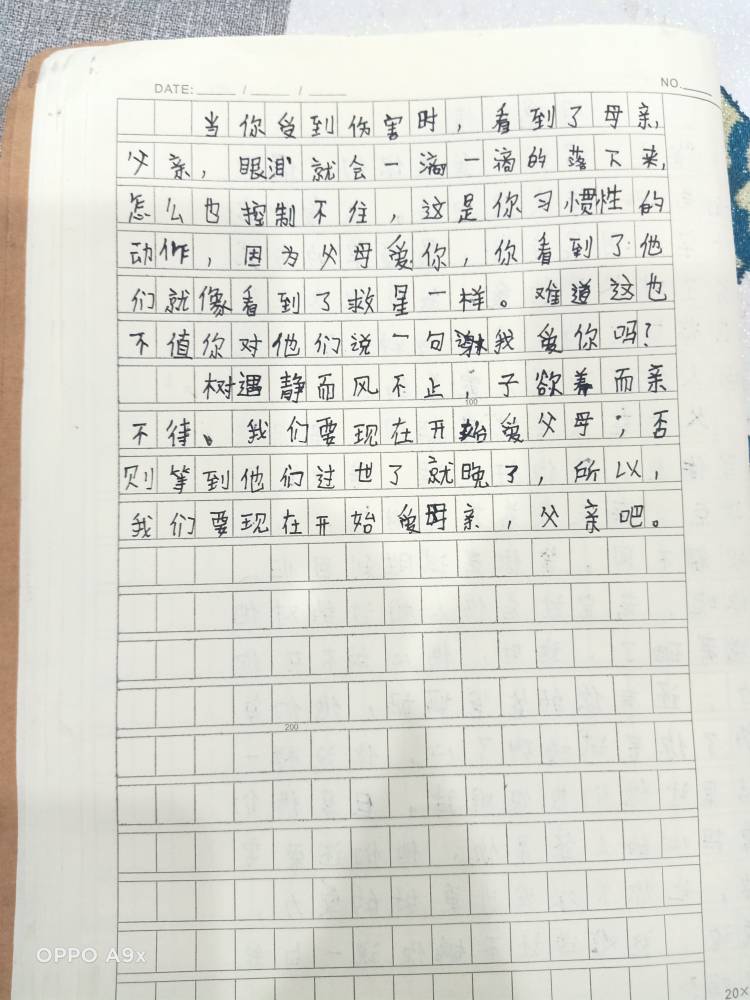 DATE: / / NO.
当你受到伤害时，看到了母亲，
父亲，眼泪就会一滴一滴的落下来，
怎么也控制不住，这是你习惯性的
动作，因为父母爱你，你看到了他
们就像看到了救星一样。难道这也
不值你对他们说一句谢我爱你吗？
树遇静而风不止，子欲养而亲
100
不待、我们要现在开始爱父母；否
则等到他们过世了就晚了，所以，
我们要现在开始爱母亲，父亲吧。
200
OPPO A9x
20×